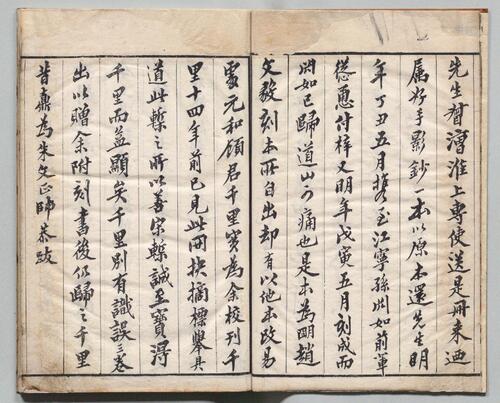 先生督漕淮上專使送是冊來迺
属好手影鈔一本以原本還先生明
年丁丑五月携至江寧孫淵如前軰
慫恿付梓又明年戊寅五月刻成而
渊如已歸道山可痛也是本為明趙
文毅刻本所自出却有以他本改易
處元和顧君千里實為余校刊千
里十四年前已見此冊抉摘標舉具
道此槧之所以善宋槧誠至寶得
千里而益顯矣千里別有識誤三卷
出以贈余附刻書後仍歸之千里
昔鼒為朱文正師恭跋